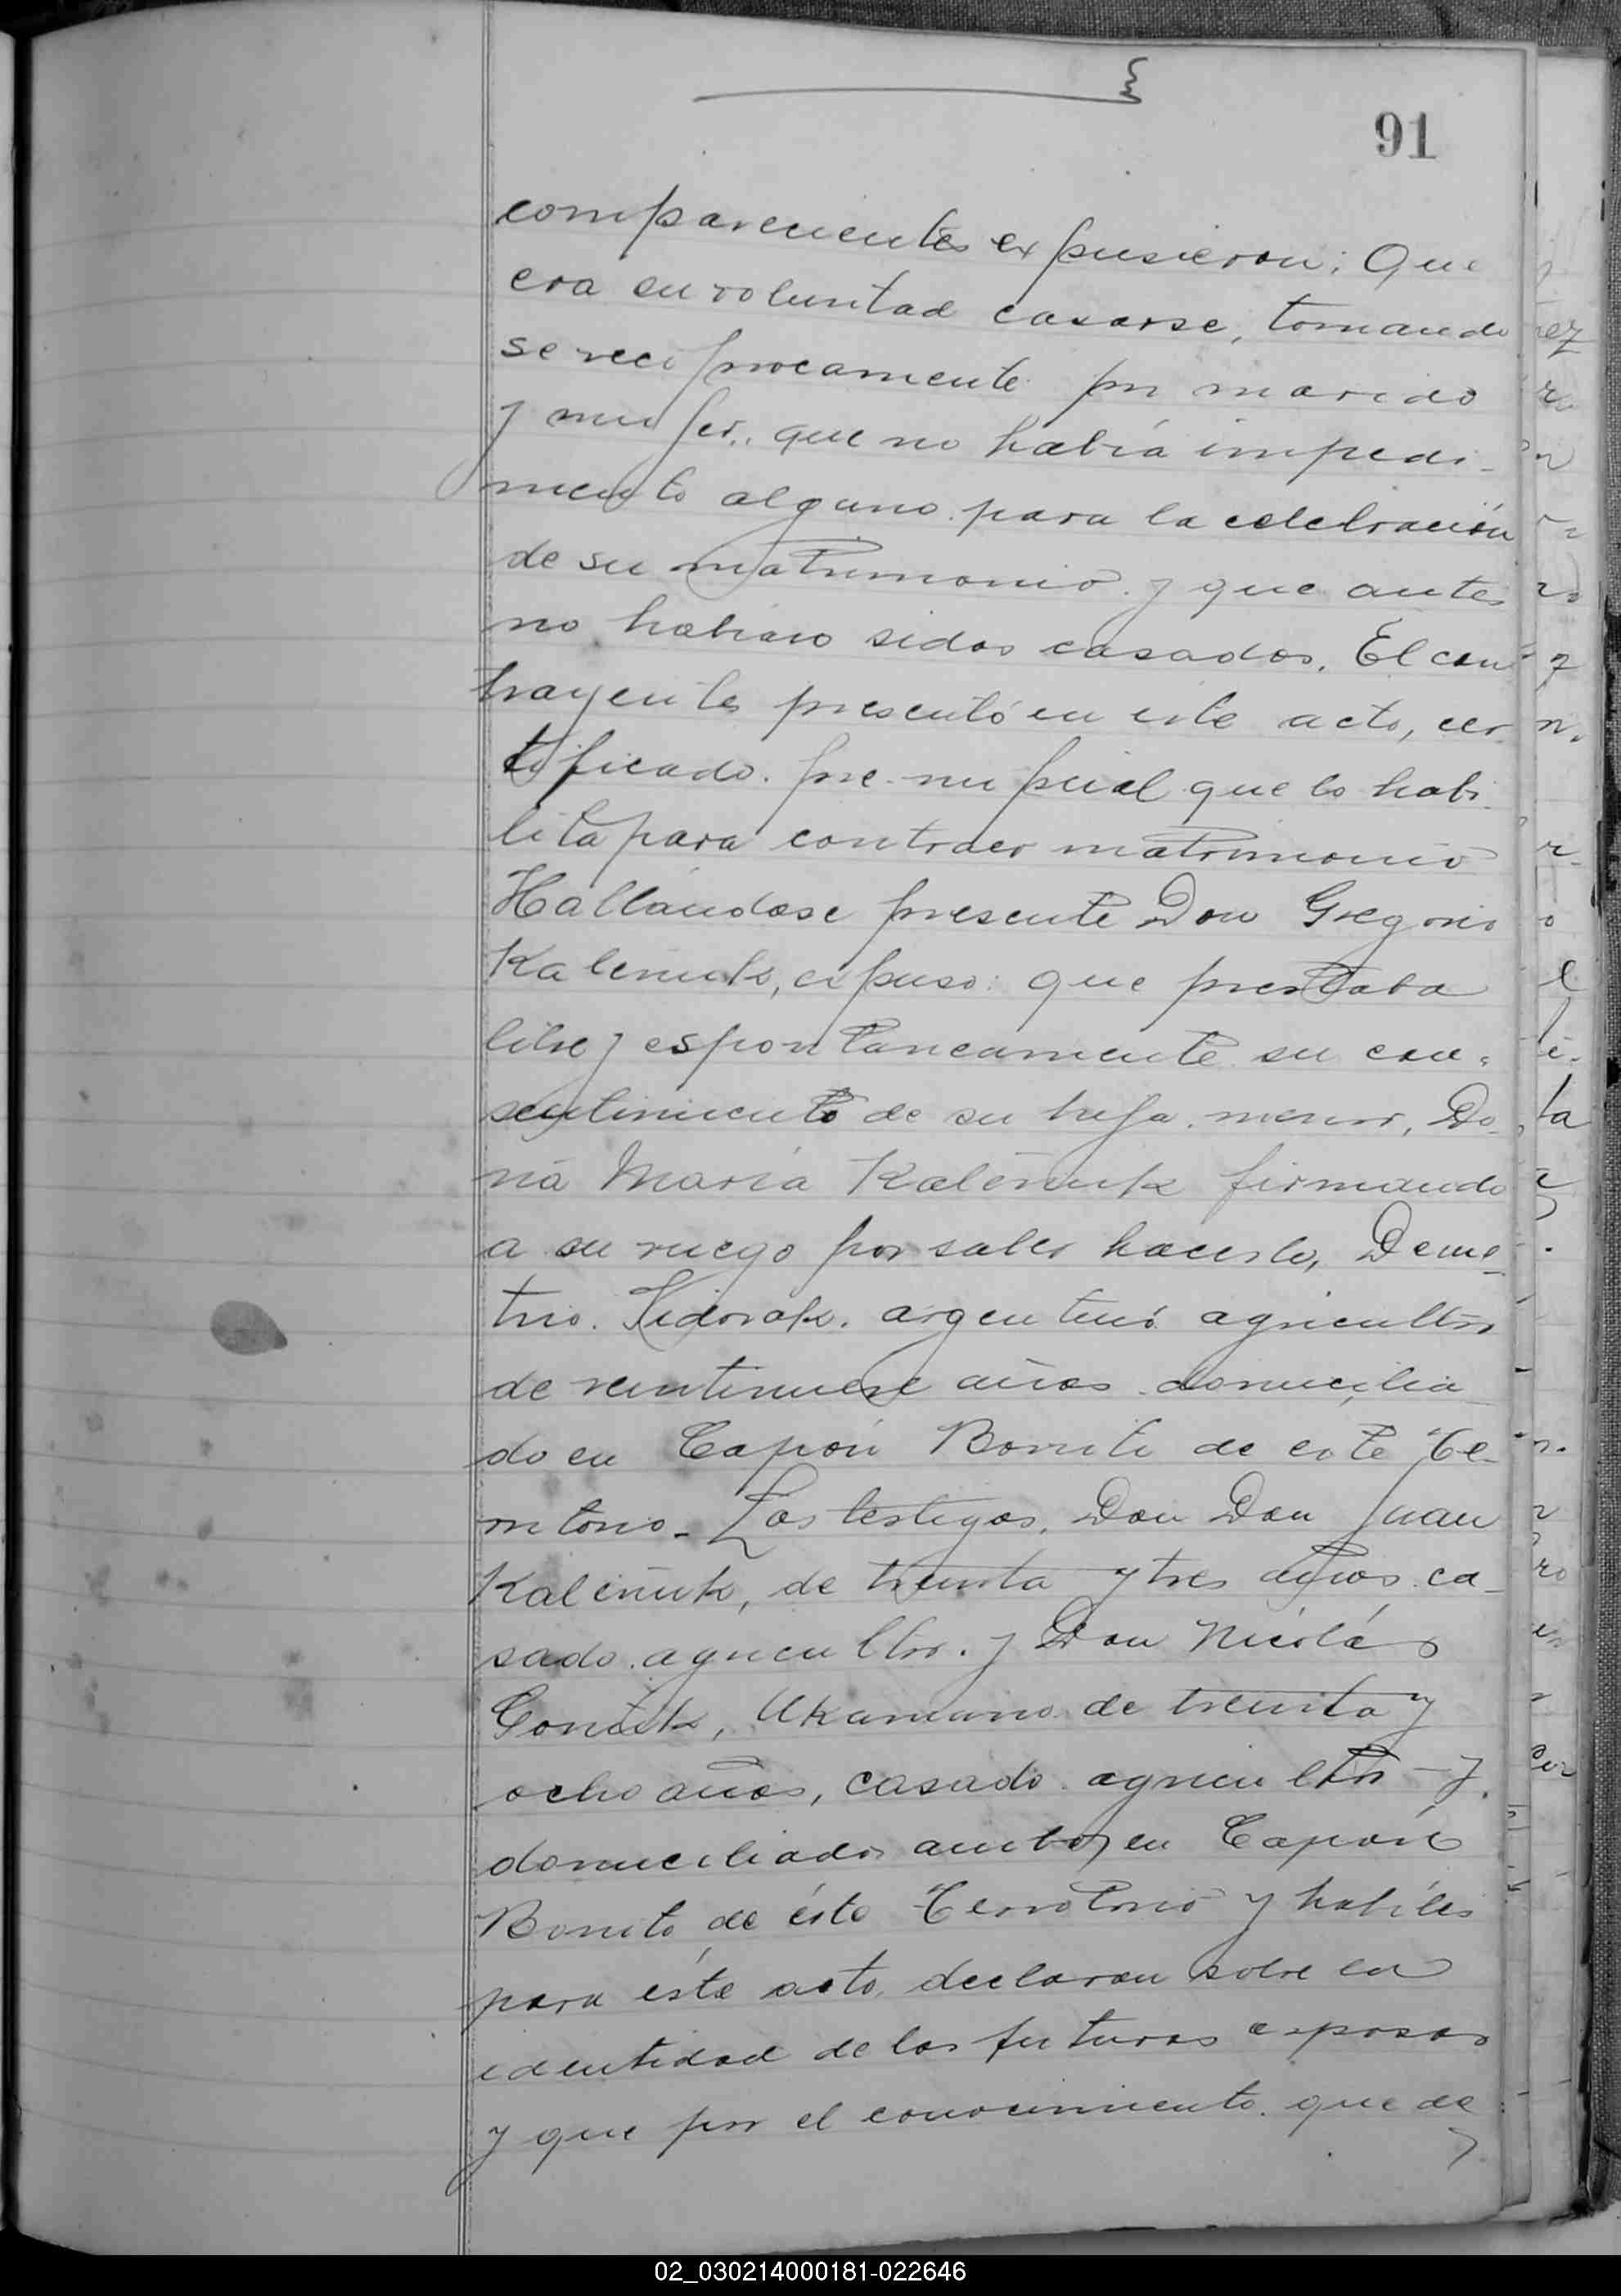 91
comparecientes expusieron: Que
era su voluntad casarse, tomando
se reciprocamente por marido
y mujer, que no había impedi-
mento alguno para la celebración
de su matrimonio y que antes
no habian sidos casados. El con
trayente presentó en este acto, cer
tificado pre-nupcial que lo habi
lita para contraer matrimonio
Hallándose presente Don Gregorio
Kaleñuk, expuso: que prestaba
libre y espontaneamente su con-
sentimiento de su hija menor, Do
ña María Kaleñuk firmando
a su ruego por saber hacerlo, Deme
trio argentino agricultor
de veintinueve años domicilia
do en Capón Bonito de este Te
rritorio - Los testigos, Don Don Juan
Kaleñuk, de treinta y tres años ca-
sado agricultor y Don Nicolás
Ukaniano de treinta y
ocho años, casado agricultor - y
domiciliados ambos en Capón
Bonito de éste Territorio y habiles
para éste acto, declaran sobre la
identidad de los futuros esposos
y que por el conocimiento que de
02_030214000181-022646